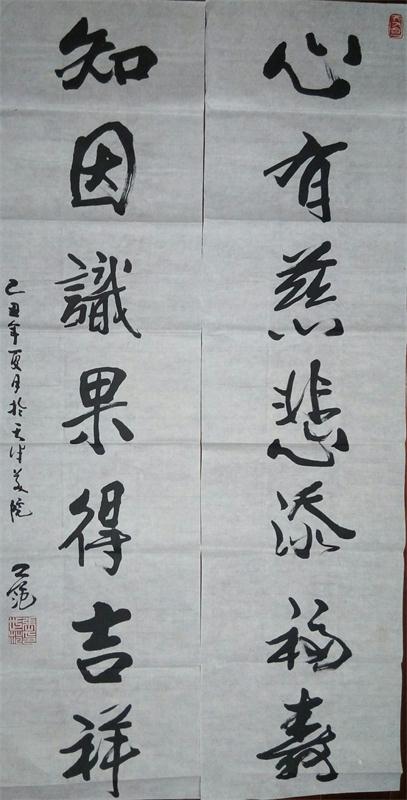 心有慈悲添福壽
知因識果得吉祥
己丑年夏月於天津美院